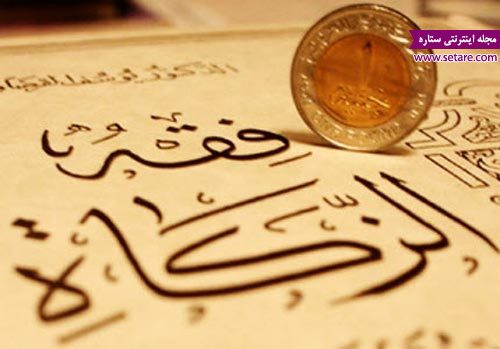 مجله اینترنتی ستاره
www.setare.com
فِقْهُ
الزَّكَاة